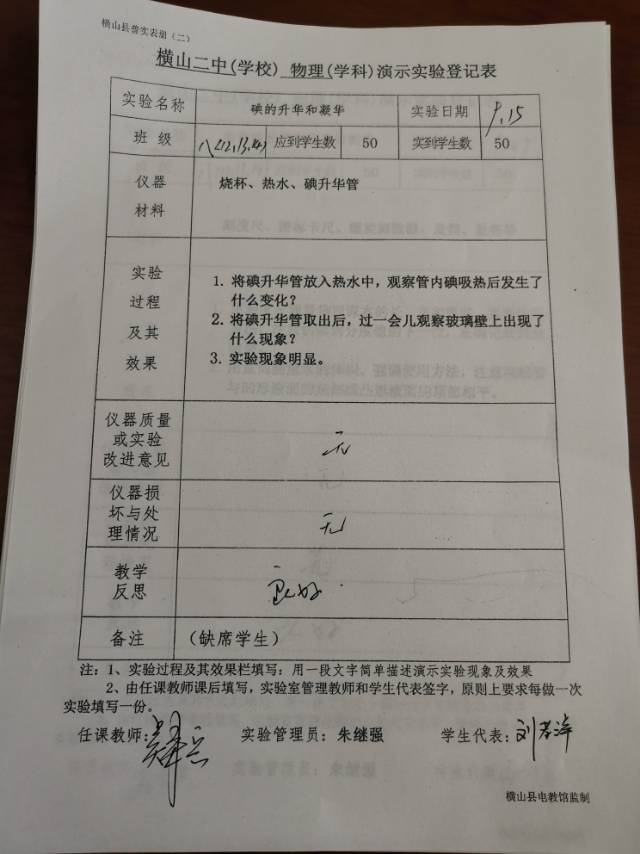 横山县普实表册（二）
横山二中(学校) 物理(学科)演示实验登记表
实验名称 碘的升华和凝华 实验日期 9.15
班 级 八(12,13,14) 应到学生数 50 实到学生数 50
仪器 烧杯、热水、碘升华管
材料
实验 1. 将碘升华管放入热水中，观察管内碘吸热后发生了
过程 什么变化？
及其 2. 将碘升华管取出后，过一会儿观察玻璃壁上出现了
什么现象？
效果 3. 实验现象明显。
仪器质量
或实验 无
改进意见
仪器损
坏与处 无
理情况
教学 良好.
反思
备注 （缺席学生）
注：1、实验过程及其效果栏填写：用一段文字简单描述演示实验现象及效果
2、由任课教师课后填写，实验室管理教师和学生代表签字，原则上要求每做一次
实验填写一份。
任课教师: 实验管理员：朱继强 学生代表：刘
横山县电教馆监制